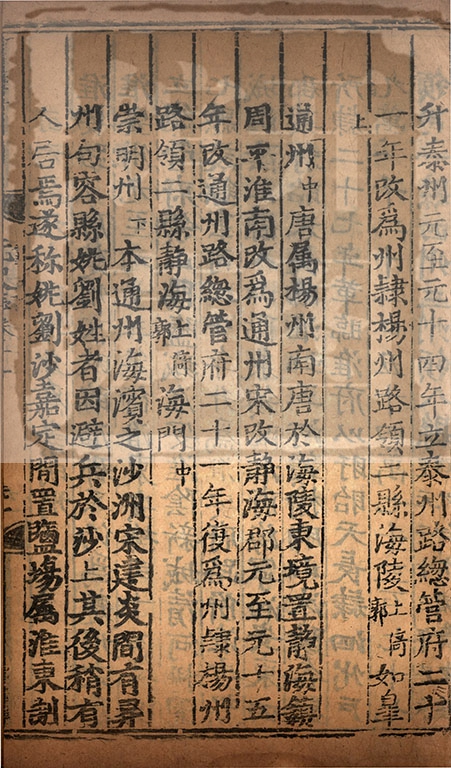 升泰州元至元十四年立泰州路緫管府二十
一年改爲州隷楊州路領二縣海陵上倚郭如皐
上
通州中唐属楊州南唐於海陵東境置静海鎮
周平淮南改爲通州宋改静海郡元至元十五
年改通州路緫管府二十一年復爲州隷楊州
路領二縣静海上倚郭海門中
崇明州下本通州海濵之沙洲宋建炎間有昇
州句容縣姚劉姓者因避兵於沙上其後稍有
人居焉遂称姚劉沙嘉定間置鹽塲属淮東制